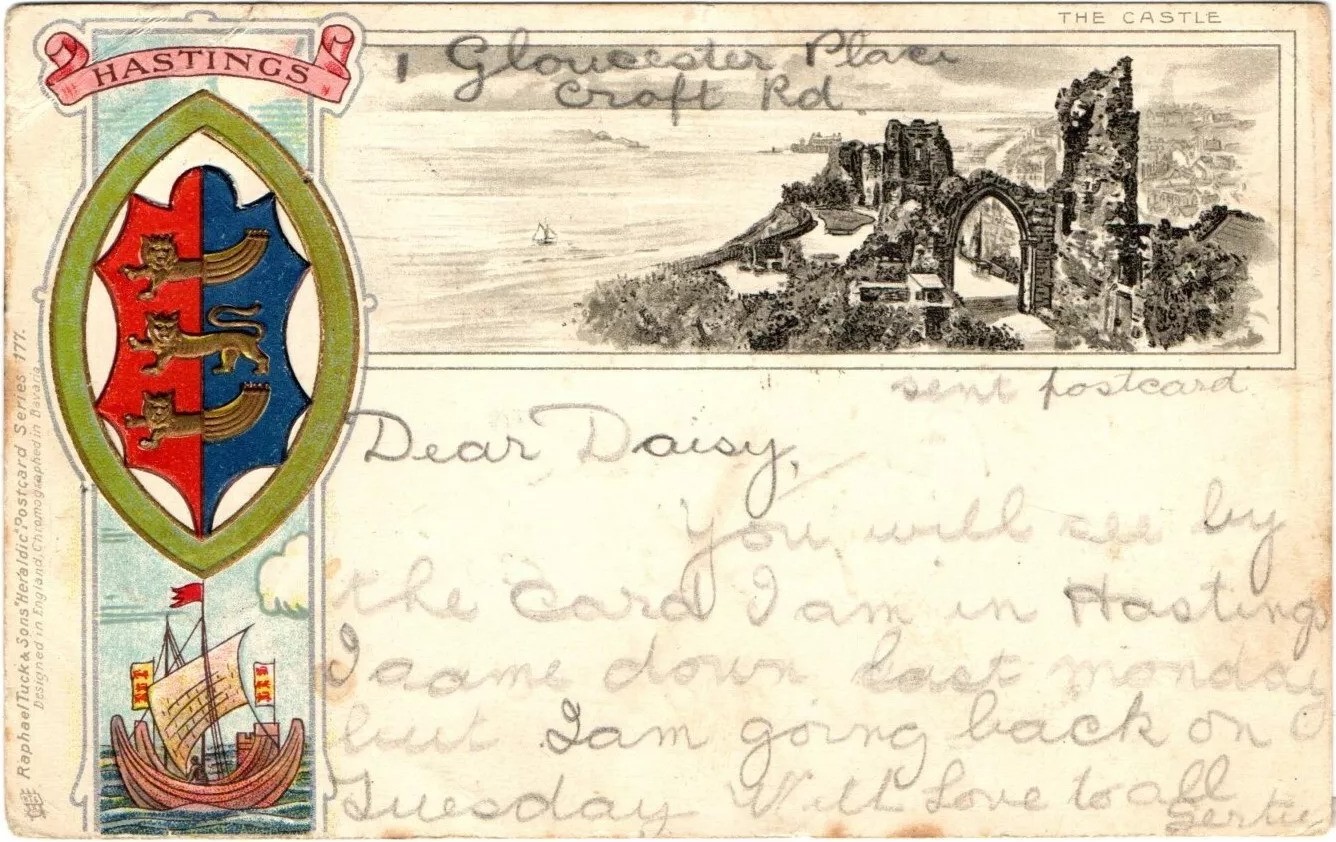 THE CASTLE
HASTINGS
1 Gloucester Place
Croft Rd
sent postcard
Dear Daisy,
You will see by
the Card I am in Hastings
I came down last monday
but I am going back on
Tuesday With Love to all
Gertie
Raphael Tuck & Sons "Heraldic" Postcard Series 177.
Designed in England, Chromographed in Bavaria.